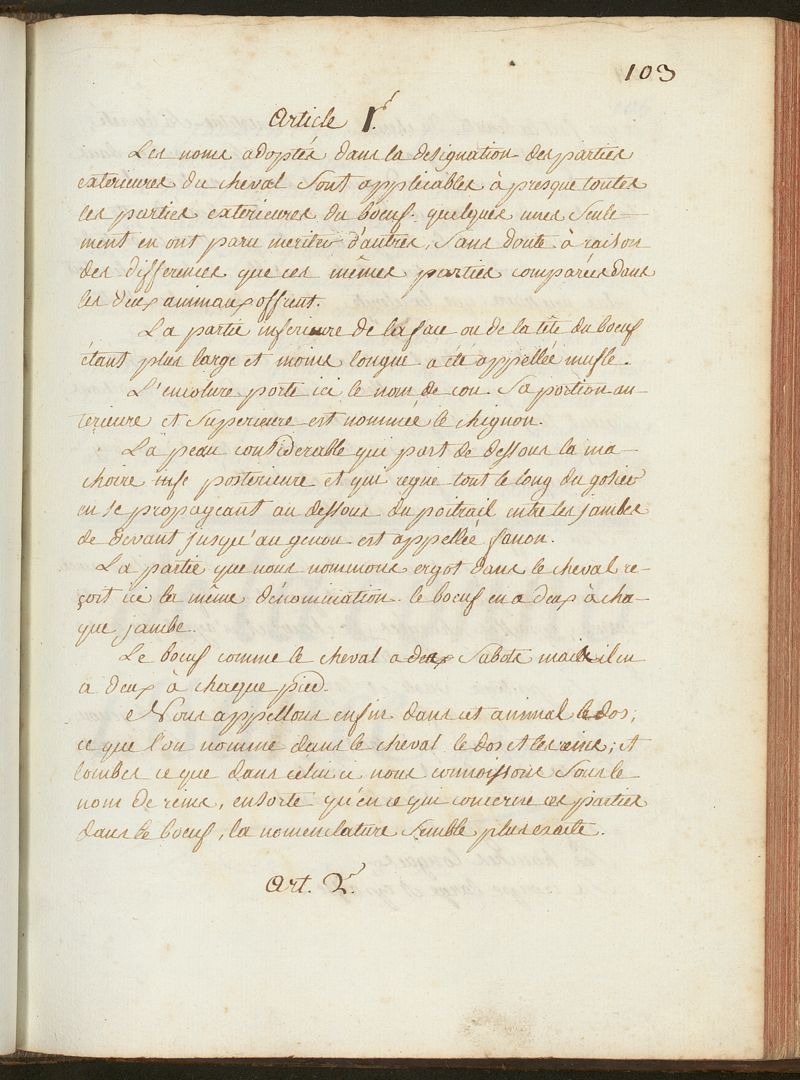 103
Article 1.r
Les noms adoptés dans la designation des parties
exterieures du cheval sont applicables à presque toutes
les parties exterieures du boeuf. quelques unes seule-
ment en ont paru meriter d'autres, sans doute à raison
des differences que ces mêmes parties comparées dans
les deux animaux offrent.
La partie inferieure de la face ou de la tête du boeuf
étant plus large et moins longue a été appellée mufle.
L'encolure porte ici le nom de cou. Sa portion an-
terieure et superieure est nommée le chignon.
La peau considerable qui part de dessous la ma-
choire posterieure et qui regne tout le long du gosier
en se propageant au dessous du poitrail entre les jambes
de devant jusqu'au genou est appellée fanon.
La partie que nous nommons ergot dans le cheval re-
çoit ici la même dénomination. le boeuf en a deux à cha-
que jambe.
Le boeuf comme le cheval a des sabots mais il en
a deux à chaque pied.
Nous appellons enfin dans cet animal le dos,
ce que l'on nomme dans le cheval le dos et les reins; et
lombes ce que dans celui ci nous connoissons sous le
nom de reins, ensorte qu'en ce qui concerne ces parties
dans le boeuf, la nomenclature semble plus exacte.
Art. 2.r